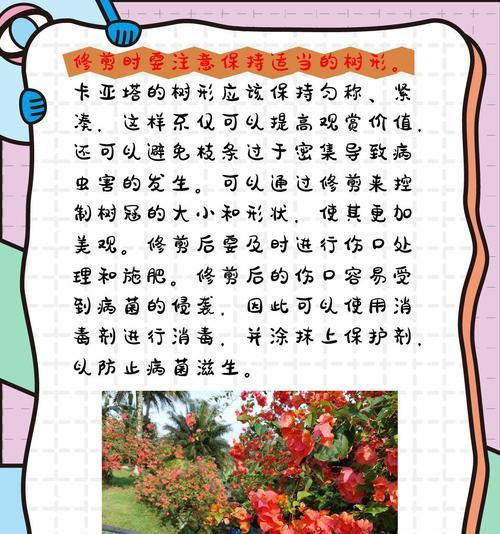 修剪时要注意保持适当的树形。
卡亚塔的树形应该保持匀称、紧
凑，这样不仅可以提高观赏价值，
还可以避免枝条过于密集导致病
虫害的发生。可以通过修剪来控
制树冠的大小和形状，使其更加
美观。修剪后要及时进行伤口处
理和施肥。修剪后的伤口容易受
到病菌的侵袭，因此可以使用消
毒剂进行消毒，并涂抹上保护剂，
以防止病菌滋生。